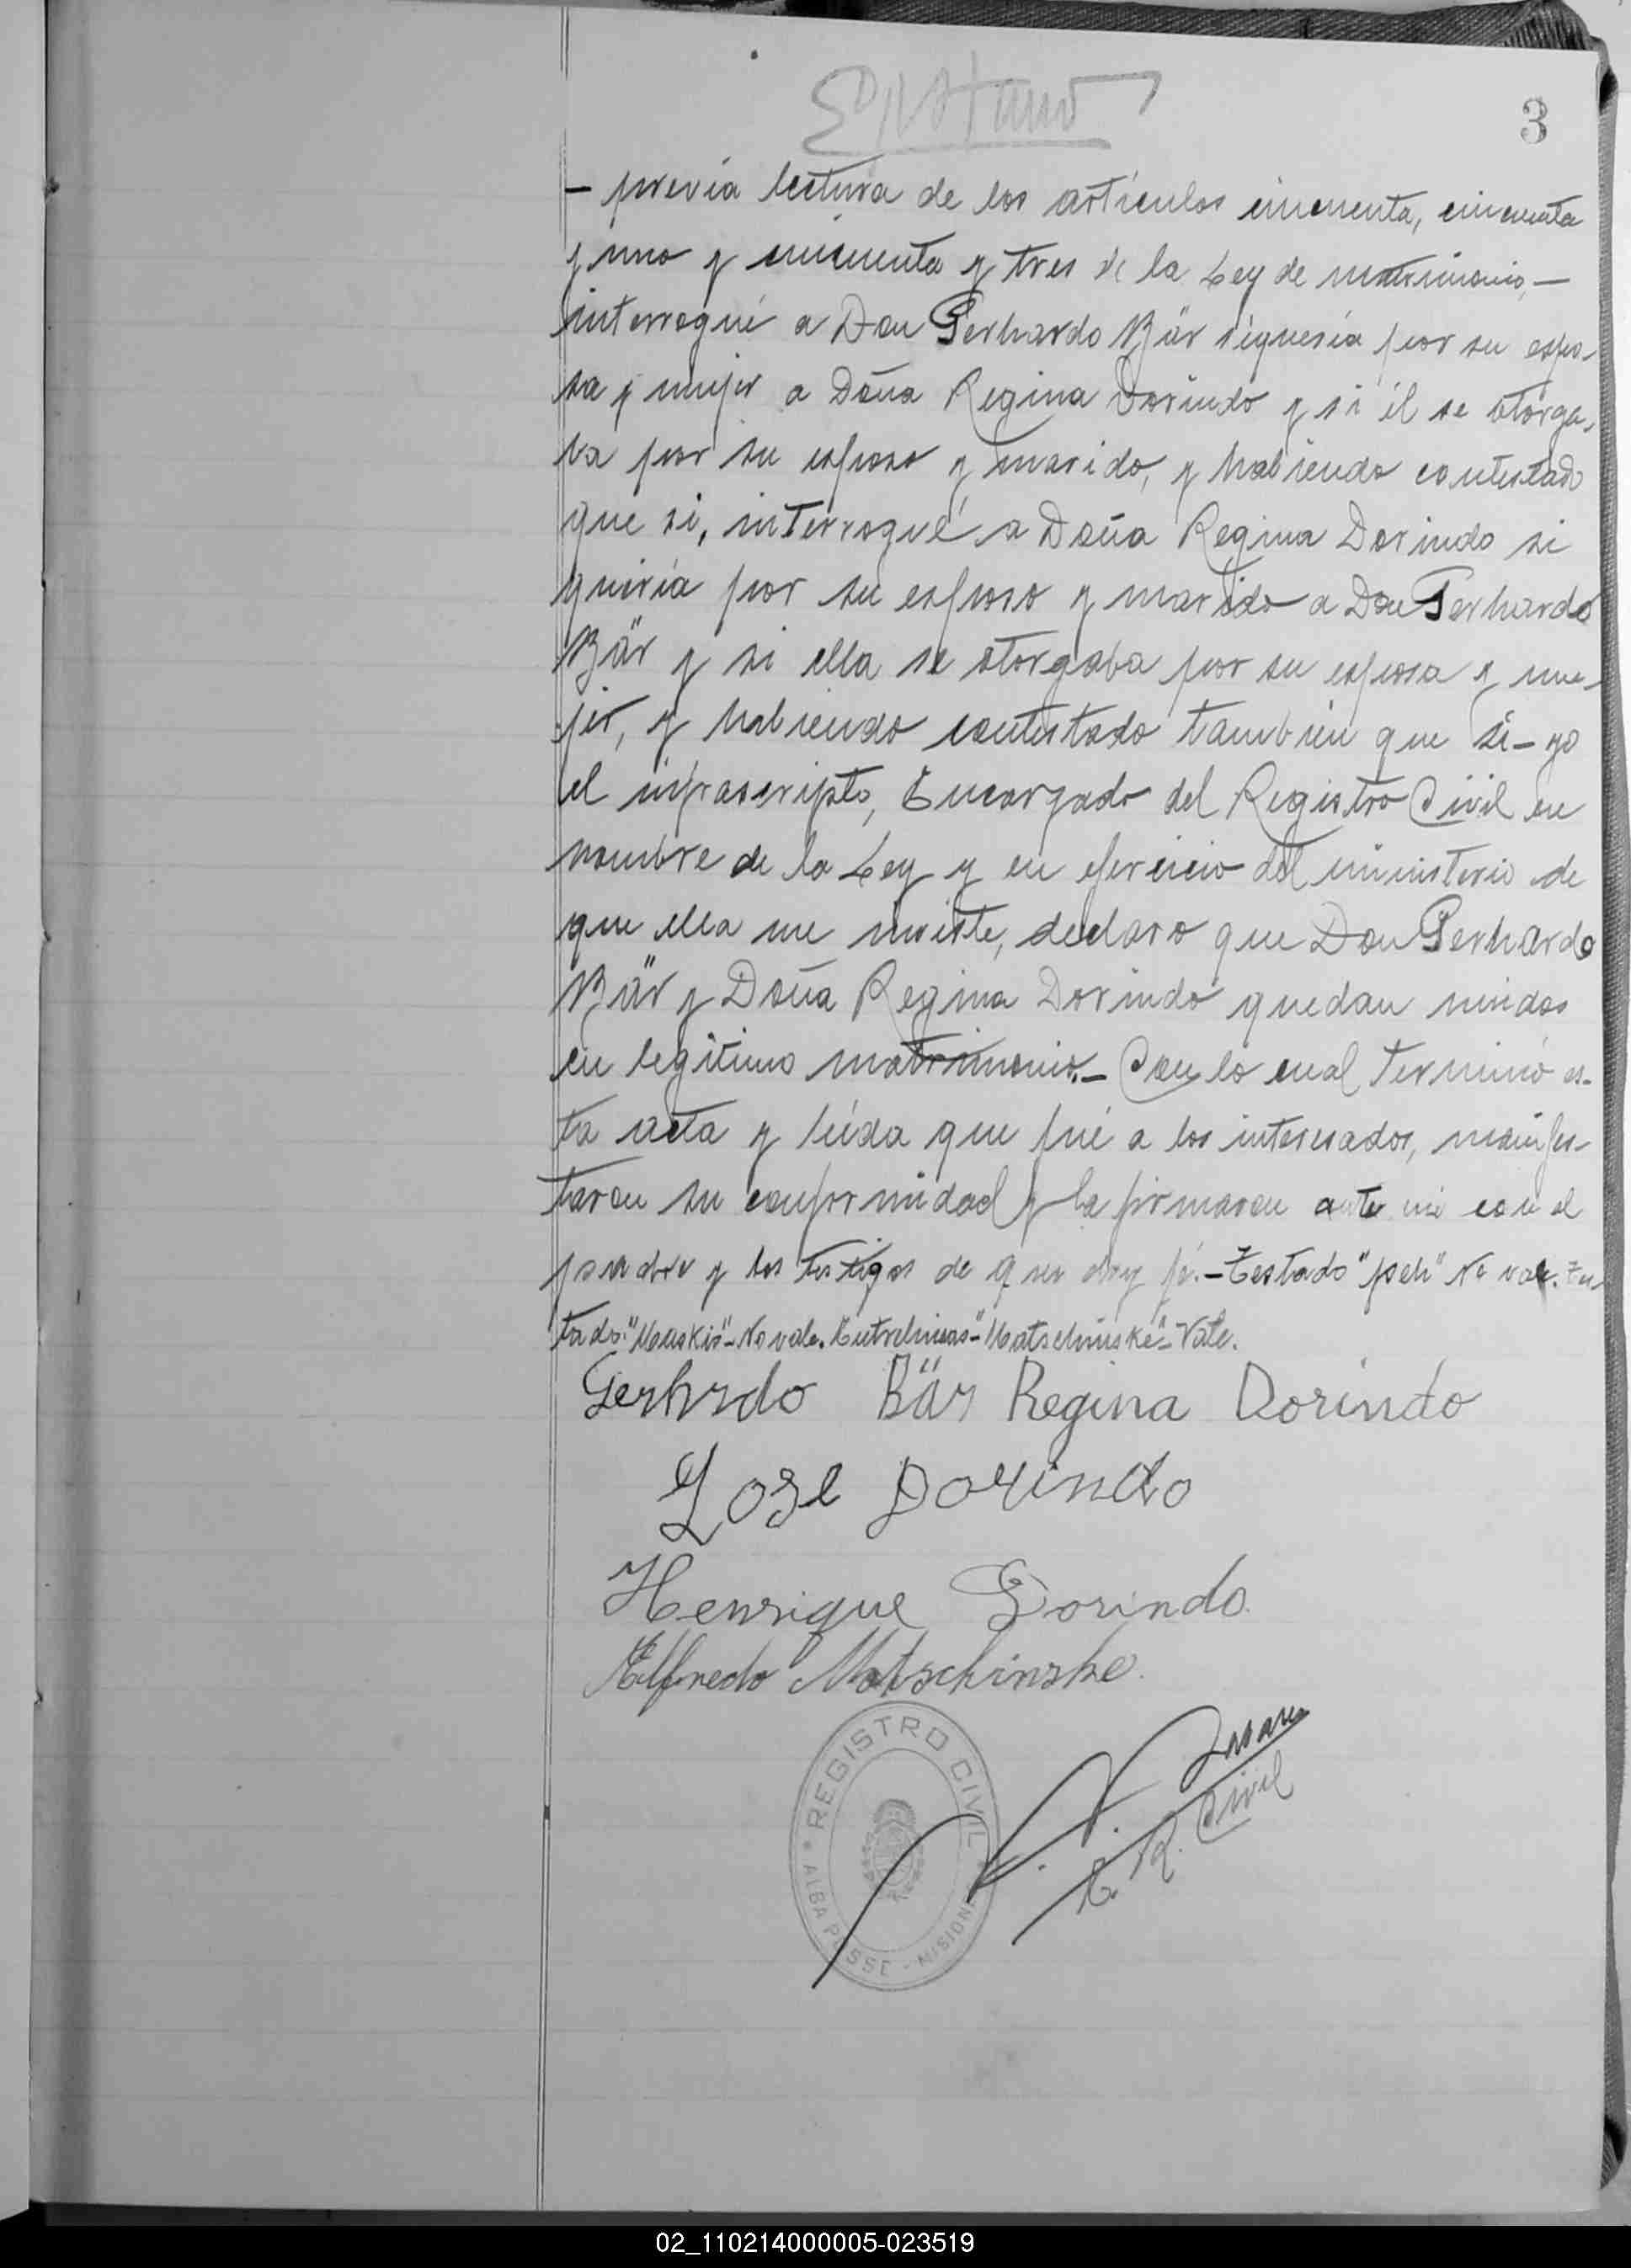 3
- previa lectura de los artículos cincuenta, cincuenta
y uno y cincuenta y tres de la Ley de matrimonio, —
interrogué a Don Gerhardo Bär siqueria por su espo-
sa y mujer a Doña Regina Dorindo y si él se otorga-
va por su esposo y marido, y habiendo contestado
que si, interrogué a Doña Regina Dorindo si
quiria por su esposo y marido a Don Gerhardo
Bär y si ella se otorgaba por su esposa y mu-
jer, y habiendo contestado tambien que si - yo
el infrascripto, Encargado del Registro Civil en
nombre de la Ley y en ejercicio del ministerio de
que ella me inviste, declaro que Don Gerhardo
Bär y Doña Regina Dorindo quedan unidos
en legitimo matrimonio. - Con lo cual terminó es-
ta acta y leida que fué a los interesados, manifes-
taron su conformidad y la firmaron ante mi con el
padre y los testigos de que doy fé. - Testado "peli" No vale. Tes-
tado: "Muskis" - No vale. Entrelineas - "Matschinske" - Vale.
Gerhrdo Bär Regina Dorindo
Jose Dorindo
Henrique Dorindo
Alfredo Matschinske.
REGISTRO CIVIL
ALBA POSSE - MISIONES
E. R. Civil
02_110214000005-023519